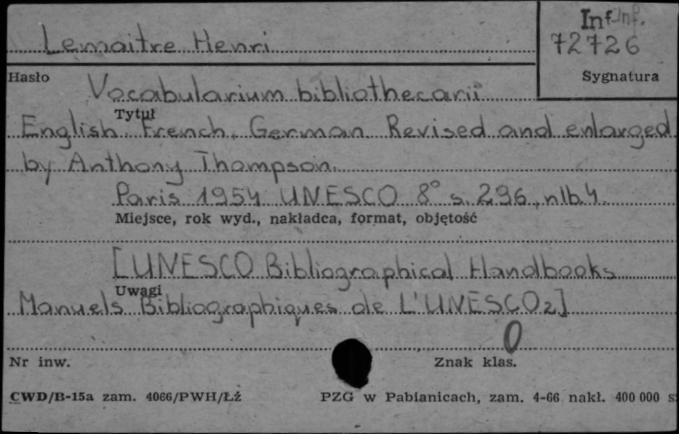 Inf. Inf.
Lemaitre Henri
72726
Hasło
Sygnatura
Vocabularium bibliothecarii
Tytuł
English. French. German. Revised and enlarged
by Anthony Thompson.
Paris 1954 UNESCO 8° s. 296, nlb. 4.
Miejsce, rok wyd., nakładca, format, objętość
[UNESCO Bibliographical Handbooks
Uwagi
Manuels Bibliographiques de L'UNESCO 2]
0
Nr inw.
Znak klas.
CWD/B-15a zam. 4066/PWH/Łż
PZG w Pabianicach, zam. 4-66 nakł. 400 000 s